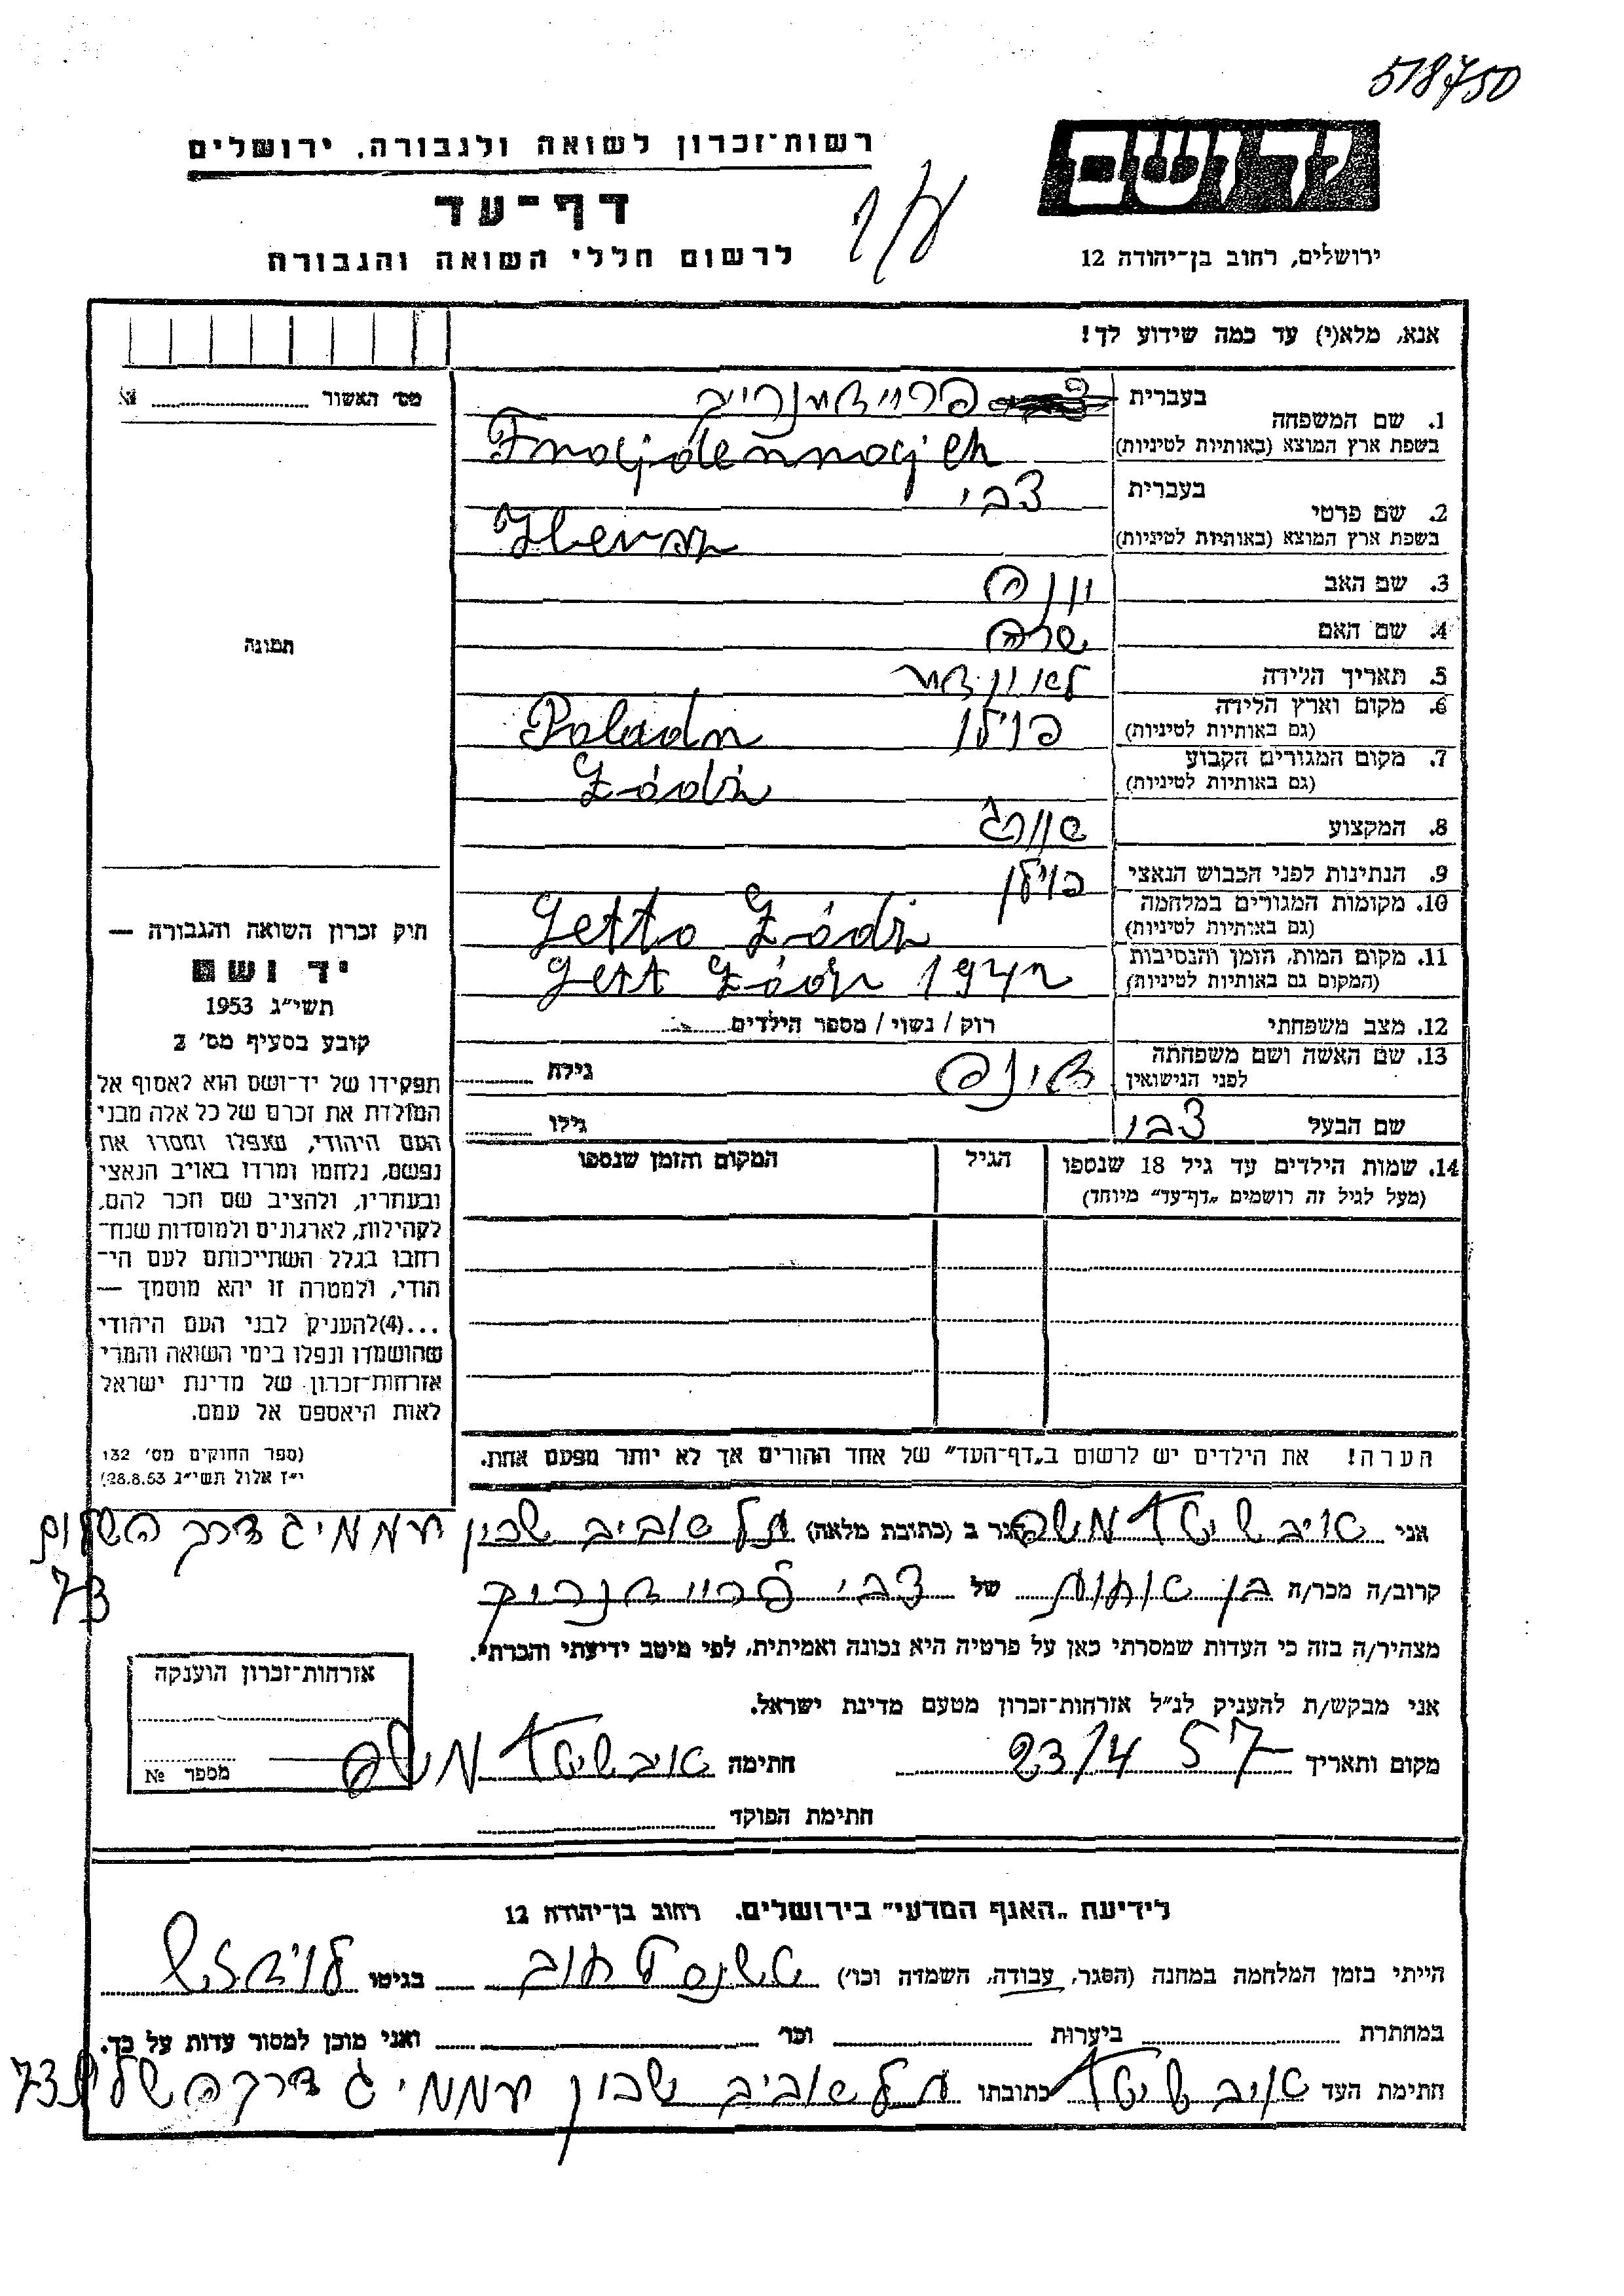 518750
רשות־זכרון לשואה ולגבורה, ירושלים
יד ושם
דף־עד
לרשום חללי השואה והגבורה
ירושלים, רחוב בן־יהודה 12
אנא, מלא(י) עד כמה שידוע לך!
מס׳ האשור №
1. שם המשפחה
בעברית
בשפת ארץ המוצא (באותיות לטיניות)
2. שם פרטי
בעברית צבי
בשפת ארץ המוצא (באותיות לטיניות)
3. שם האב יונה
4. שם האם שרה
5. תאריך הלידה
6. מקום וארץ הלידה
(גם באותיות לטיניות) פוילן
7. מקום המגורים הקבוע
(גם באותיות לטיניות) Łódź
8. המקצוע
9. הנתינות לפני הכבוש הנאצי פוילן
10. מקומות המגורים במלחמה
(גם באותיות לטיניות) Getto Łódź
11. מקום המות, הזמן והנסיבות
(המקום גם באותיות לטיניות) Gett Łódź 1942
12. מצב משפחתי רוק / נשוי / מספר הילדים
13. שם האשה ושם משפחתה
לפני הנישואין גילה
שם הבעל צבי גילו
14. שמות הילדים עד גיל 18 שנספו הגיל המקום והזמן שנספו
(מעל לגיל זה רושמים „דף־עד״ מיוחד)
הערה! את הילדים יש לרשום ב„דף־העד״ של אחד ההורים אך לא יותר מפעם אחת.
תמונה
חוק זכרון השואה והגבורה —
יד ושם
תשי״ג 1953
קובע בסעיף מס׳ 2
תפקידו של יד־ושם הוא לאסוף אל
המולדת את זכרם של כל אלה מבני
העם היהודי, שנפלו ומסרו את
נפשם, נלחמו ומרדו באויב הנאצי
ובעוזריו, ולהציב שם וזכר להם,
לקהילות, לארגונים ולמוסדות שנח־
רבו בגלל השתייכותם לעם הי־
הודי, ולמטרה זו יהא מוסמך —
...(4)להעניק לבני העם היהודי
שהושמדו ונפלו בימי השואה והמרי
אזרחות־זכרון של מדינת ישראל
לאות היאספם אל עמם.
(ספר החוקים מס׳ 132
י״ז אלול תשי״ג 28.8.53)
אני משה הגר ב (כתובת מלאה) תל אביב שכון עממי ג דרך השלום
73
קרוב/ה מכר/ה בן אחות של צבי
מצהיר/ה בזה כי העדות שמסרתי כאן על פרטיה היא נכונה ואמיתית, לפי מיטב ידיעתי והכרתי.
אני מבקש/ת להעניק לנ״ל אזרחות־זכרון מטעם מדינת ישראל.
מקום ותאריך 23/4 57 חתימה משה
חתימת הפוקד
אזרחות־זכרון הוענקה
מספר №
לידיעת „האגף המדעי״ בירושלים. רחוב בן־יהודה 12
הייתי בזמן המלחמה במחנה (הסגר, עבודה, השמדה וכו׳) בגיטו
במחתרת ביערות וכו׳ ואני מוכן למסור עדות על כך.
חתימת העד כתובתו תל אביב שכון עממי ג דרך השלום 73